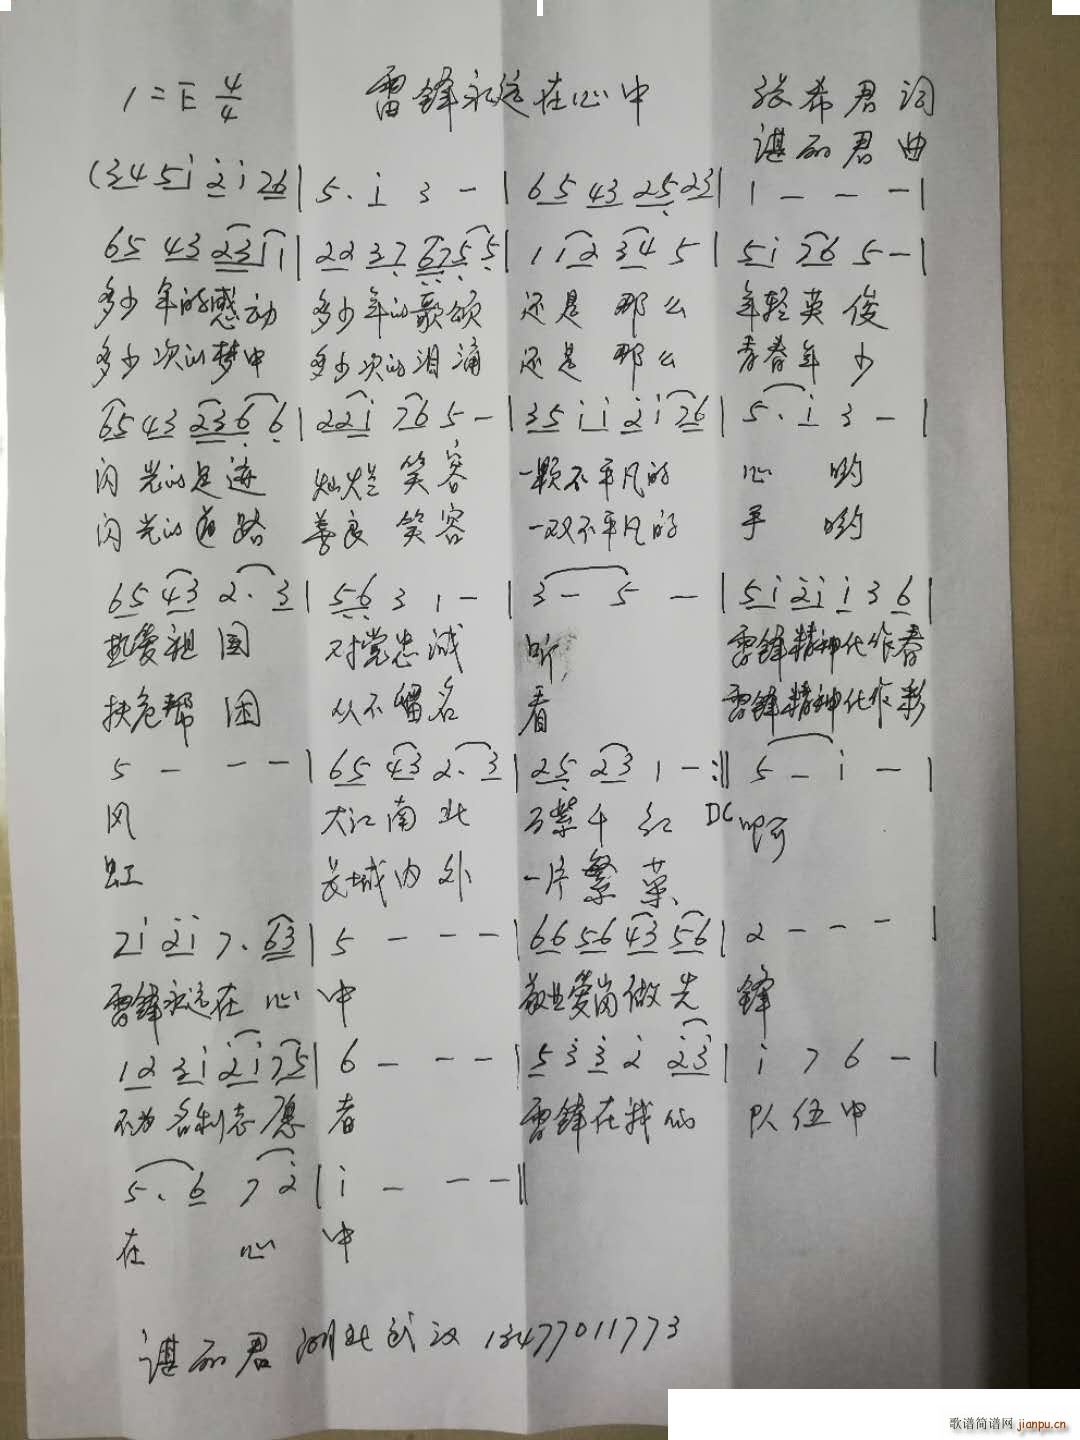 1=E 4/4 雷锋永远在心中 张希君词
谌丽君曲
(34 5i 2i 26 | 5. i 3 - | 65 43 25 23 | 1 - - - |
65 43 23 1 1 | 22 37 6755 | 1 1 2 34 5 | 5i 76 5 - |
多少年的感动 多少年的歌颂 还是那么 年轻英俊
多少次的梦中 多少次的泪涌 还是那么 青春年少
65 43 236 6 | 22i 76 5 - | 35 ii 2i 76 | 5. i 3 - |
闪光的足迹 灿烂笑容 一颗不平凡的 心哟
闪光的道路 善良笑容 一双不平凡的 手哟
65 43 2. 3 | 56 3 1 - | 3 - 5 - | 5i 2i i 3 6 |
热爱祖国 对党忠诚 听 雷锋精神化作春
扶危帮困 从不留名 看 雷锋精神化作彩
5 - - - | 65 43 2. 3 | 25 23 1 - :|| 5 - i - |
风 大江南北 万紫千红 DC 啊
虹 长城内外 一片繁荣
7i 2i 7. 63 | 5 - - - | 66 56 43 56 | 2 - - - |
雷锋永远在心中 敬业爱岗做先锋
12 3i 2i 75 | 6 - - - | 5 3 3 2 23 | i 7 6 - |
不为名利志愿者 雷锋在我们 队伍中
5. 6 7 2 | i - - - ||
在 心 中
谌丽君 湖北武汉 13477011773
歌谱简谱网 jianpu.cn